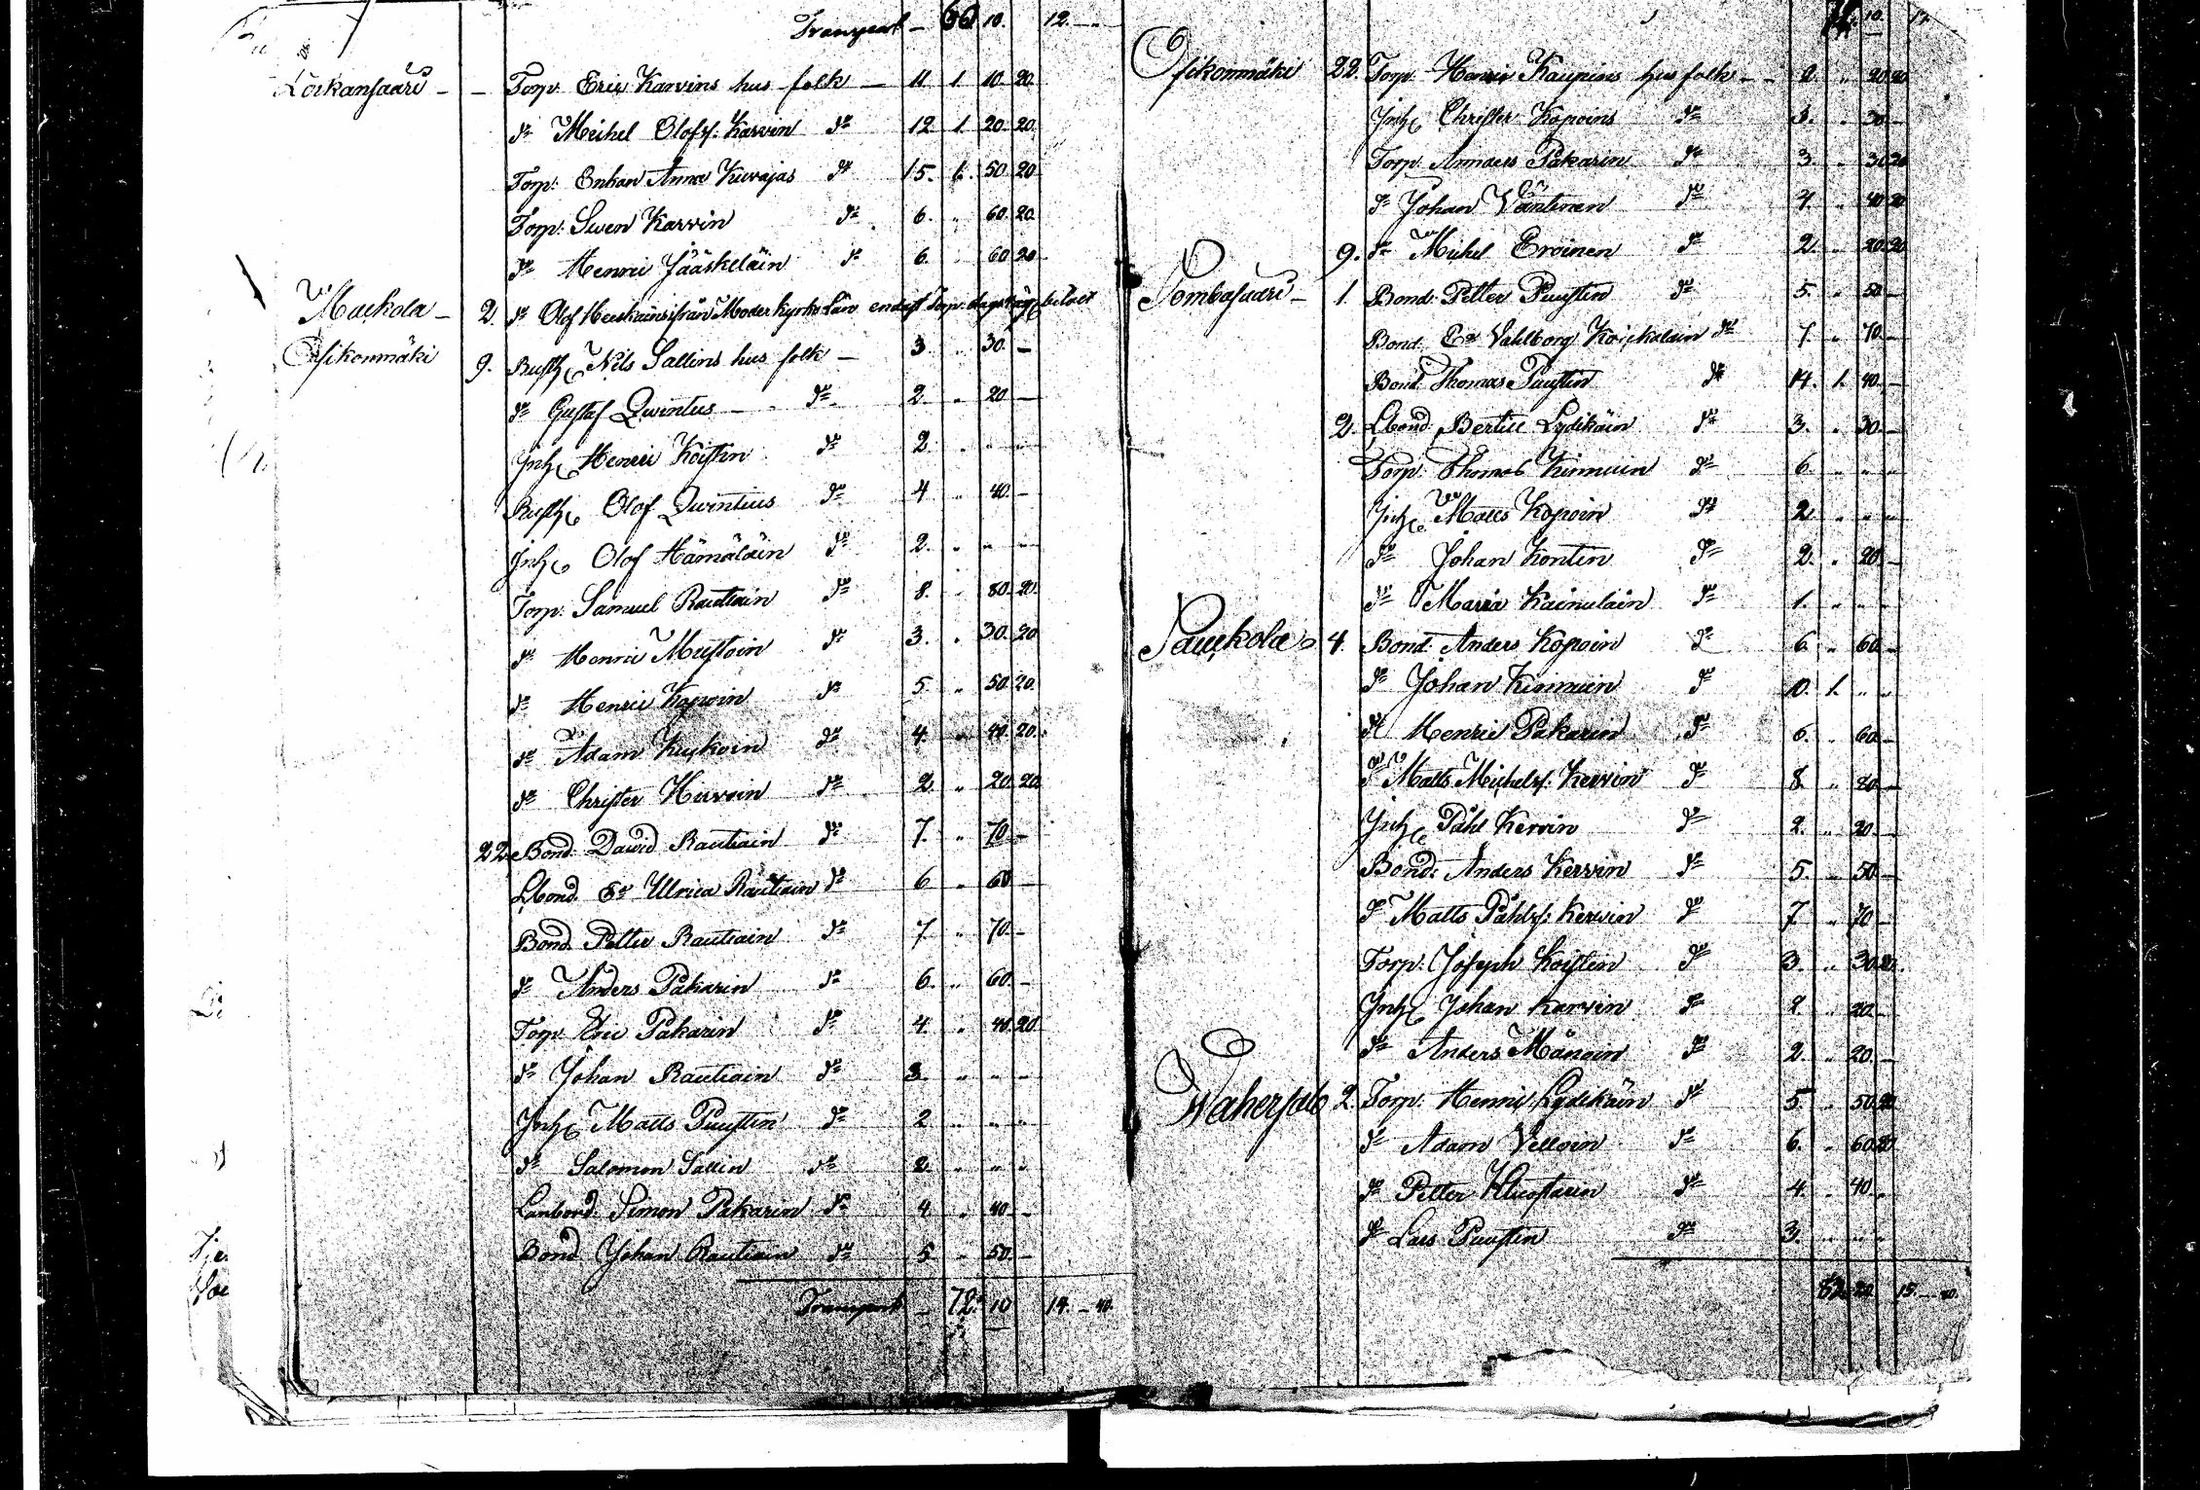 Transport — 66 10. 12. —
Loikansaari — — Torp. Eric Karvins hus folk — 11. 1. 10. 20.
Dº Michel Olofs: Karvin dº 12. 1. 20. 20.
Torp: Enkan Anna Kuvajas dº 15. 1. 50. 20.
Torp: Swen Karvin dº 6. „ 60. 20.
Dº Henric Jääskeläin dº 6. „ 60. 20.
Mackola — 2. Dº Olof från Moderkyrko Län endast Torp. betalt
Osikonmäki 9. Rusth. Nils Sallins hus folk — 3. „ 30. —
Dº Gustaf Qwintus — dº 2. „ 20. —
Inh. Henric Koistin dº 2. „ „ „
Rusth. Olof Qwintus dº 4. „ 40. —
Inh. Olof Hämäläin dº 2. „ „ „
Torp. Samuel Rautiain dº 8. „ 80. 20.
Dº Henric Mustoin dº 3. „ 30. 20.
Dº Henric Kopoin dº 5. „ 50. 20.
Dº Adam dº 4. „ 40. 20.
Dº Christer Hirvoin dº 2. „ 20. 20.
22. Bond. David Rautiain dº 7. „ 70. —
Lbond. Eº Ulrica Rautiain dº 6. „ 60. —
Bond. Petter Rautiain dº 7. „ 70. —
Dº Anders Pakarin dº 6. „ 60. —
Torp. Eric Pakarin dº 4. „ 40. 20.
Dº Johan Rautiain dº 3. „ „ „
Inh. Matts Puustin dº 2. „ „ „
Dº Salomon Sallin dº 2. „ „ „
Lanbond. Simon Pakarin dº 4. „ 40. —
Bond. Johan Rautiain dº 5. „ 50. —
Transport — 72. 10. 14. — 40.
10.
Osikonmäki 22. Torp. Henric Kaupins hus folk — 2. „ 20. 20.
Inh. Christer Kopoins dº 3. „ 30. —
Torp. Anders Pakarin dº 3. „ 30. 20.
Dº Johan Väntinen dº 4. „ 40. 20.
9. Dº Michel Eroinen dº 2. „ 20. 20.
Pombasaari — 1. Bond. Petter Puustin dº 5. „ 50. —
Bond. Eº Vahlborg dº 7. „ 70. —
Bond. Thomas Puustin dº 14. 1. 40. —
2. Lbond. Bertill Lydikäin dº 3. „ 30. —
Torp. Thomas Kinnuin dº 6. „ „ „
Inh. Matts Kopoin dº 2. „ „ „
Dº Johan Kontin dº 2. „ 20. —
Dº Maria Kainulain dº 1. „ „ „
Pauckola 4. Bond. Anders Kopoin dº 6. „ 60. —
Dº Johan Kinnuin dº 10. 1. „ „
Dº Henric Pakarin dº 6. „ 60. —
Dº Matts Michels: Kervin dº 8. „ 80. —
Inh. Påhl Kervin dº 2. „ 20. —
Bond. Anders Kervin dº 5. „ 50. —
Dº Matts Påhls: Kervin dº 7. „ 70. —
Torp. Joseph Koistin dº 3. „ 30. 20.
Inh. Johan Karvin dº 2. „ 20. —
Dº Anders Mänoin dº 2. „ 20. —
Wahersalo 2. Torp. Henric Lydikäin dº 5. „ 50. 20.
Dº Adam Velloin dº 6. „ 60. 20.
Dº Petter dº 4. „ 40. „
Dº Lars Puustin dº 3. „ „ „
82. 20. 15. — 40.